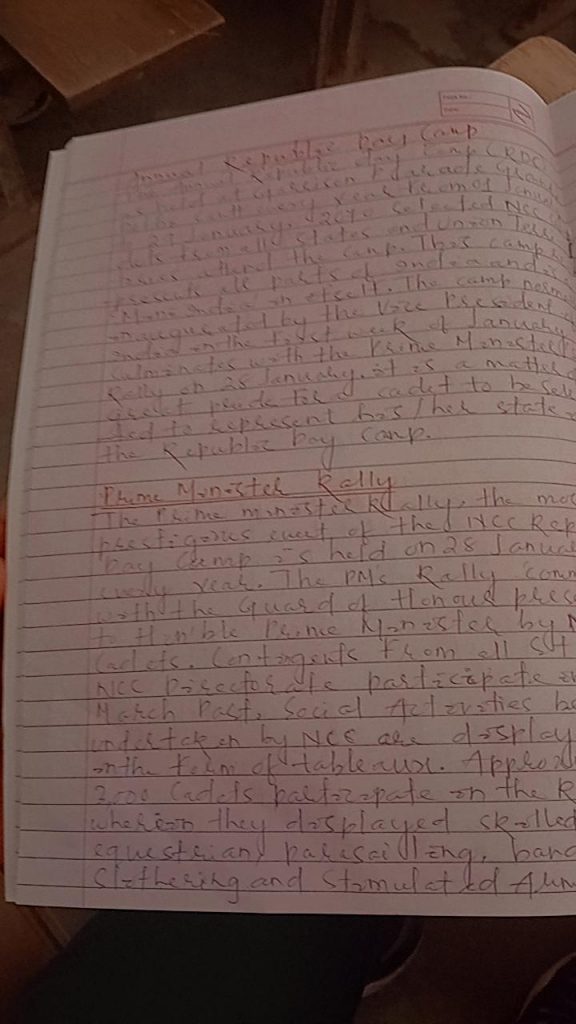 Annual Republic Day Camp
The Annual Republic day Camp (RDC)
is held at Garrison Parade Ground
Delhi cantt every year from 01 January
29 January. 2070 selected NCC
dets from all states and Union Terr
tories attend the camp. This camp
presents all parts of India and is
Mini India in itself. The camp
inaugurated by the Vice President
India in the first week of January
culminates with the Prime Minister
Rally on 28 January. it is a matter
great pride for a cadet to be sele
cted to represent his/her state
the Republic Day Camp.
Prime Minister Rally
The Prime minister Rally, the mo
prestigious event of the NCC Rep
Day Camp is held on 28 Janua
every year. The PM's Rally comm
with the Guard of Honour prese
to Hon'ble Prime Minister by N
Cadets. Contingents from all
NCC Directorate participate in
March Past. Social Activities be
undertaken by NCC are display
in the form of tableaux. Approx
2,000 Cadets participate in the R
wherein they displayed skilled
equestrian, parasailing, band
Slithering and Stimulated